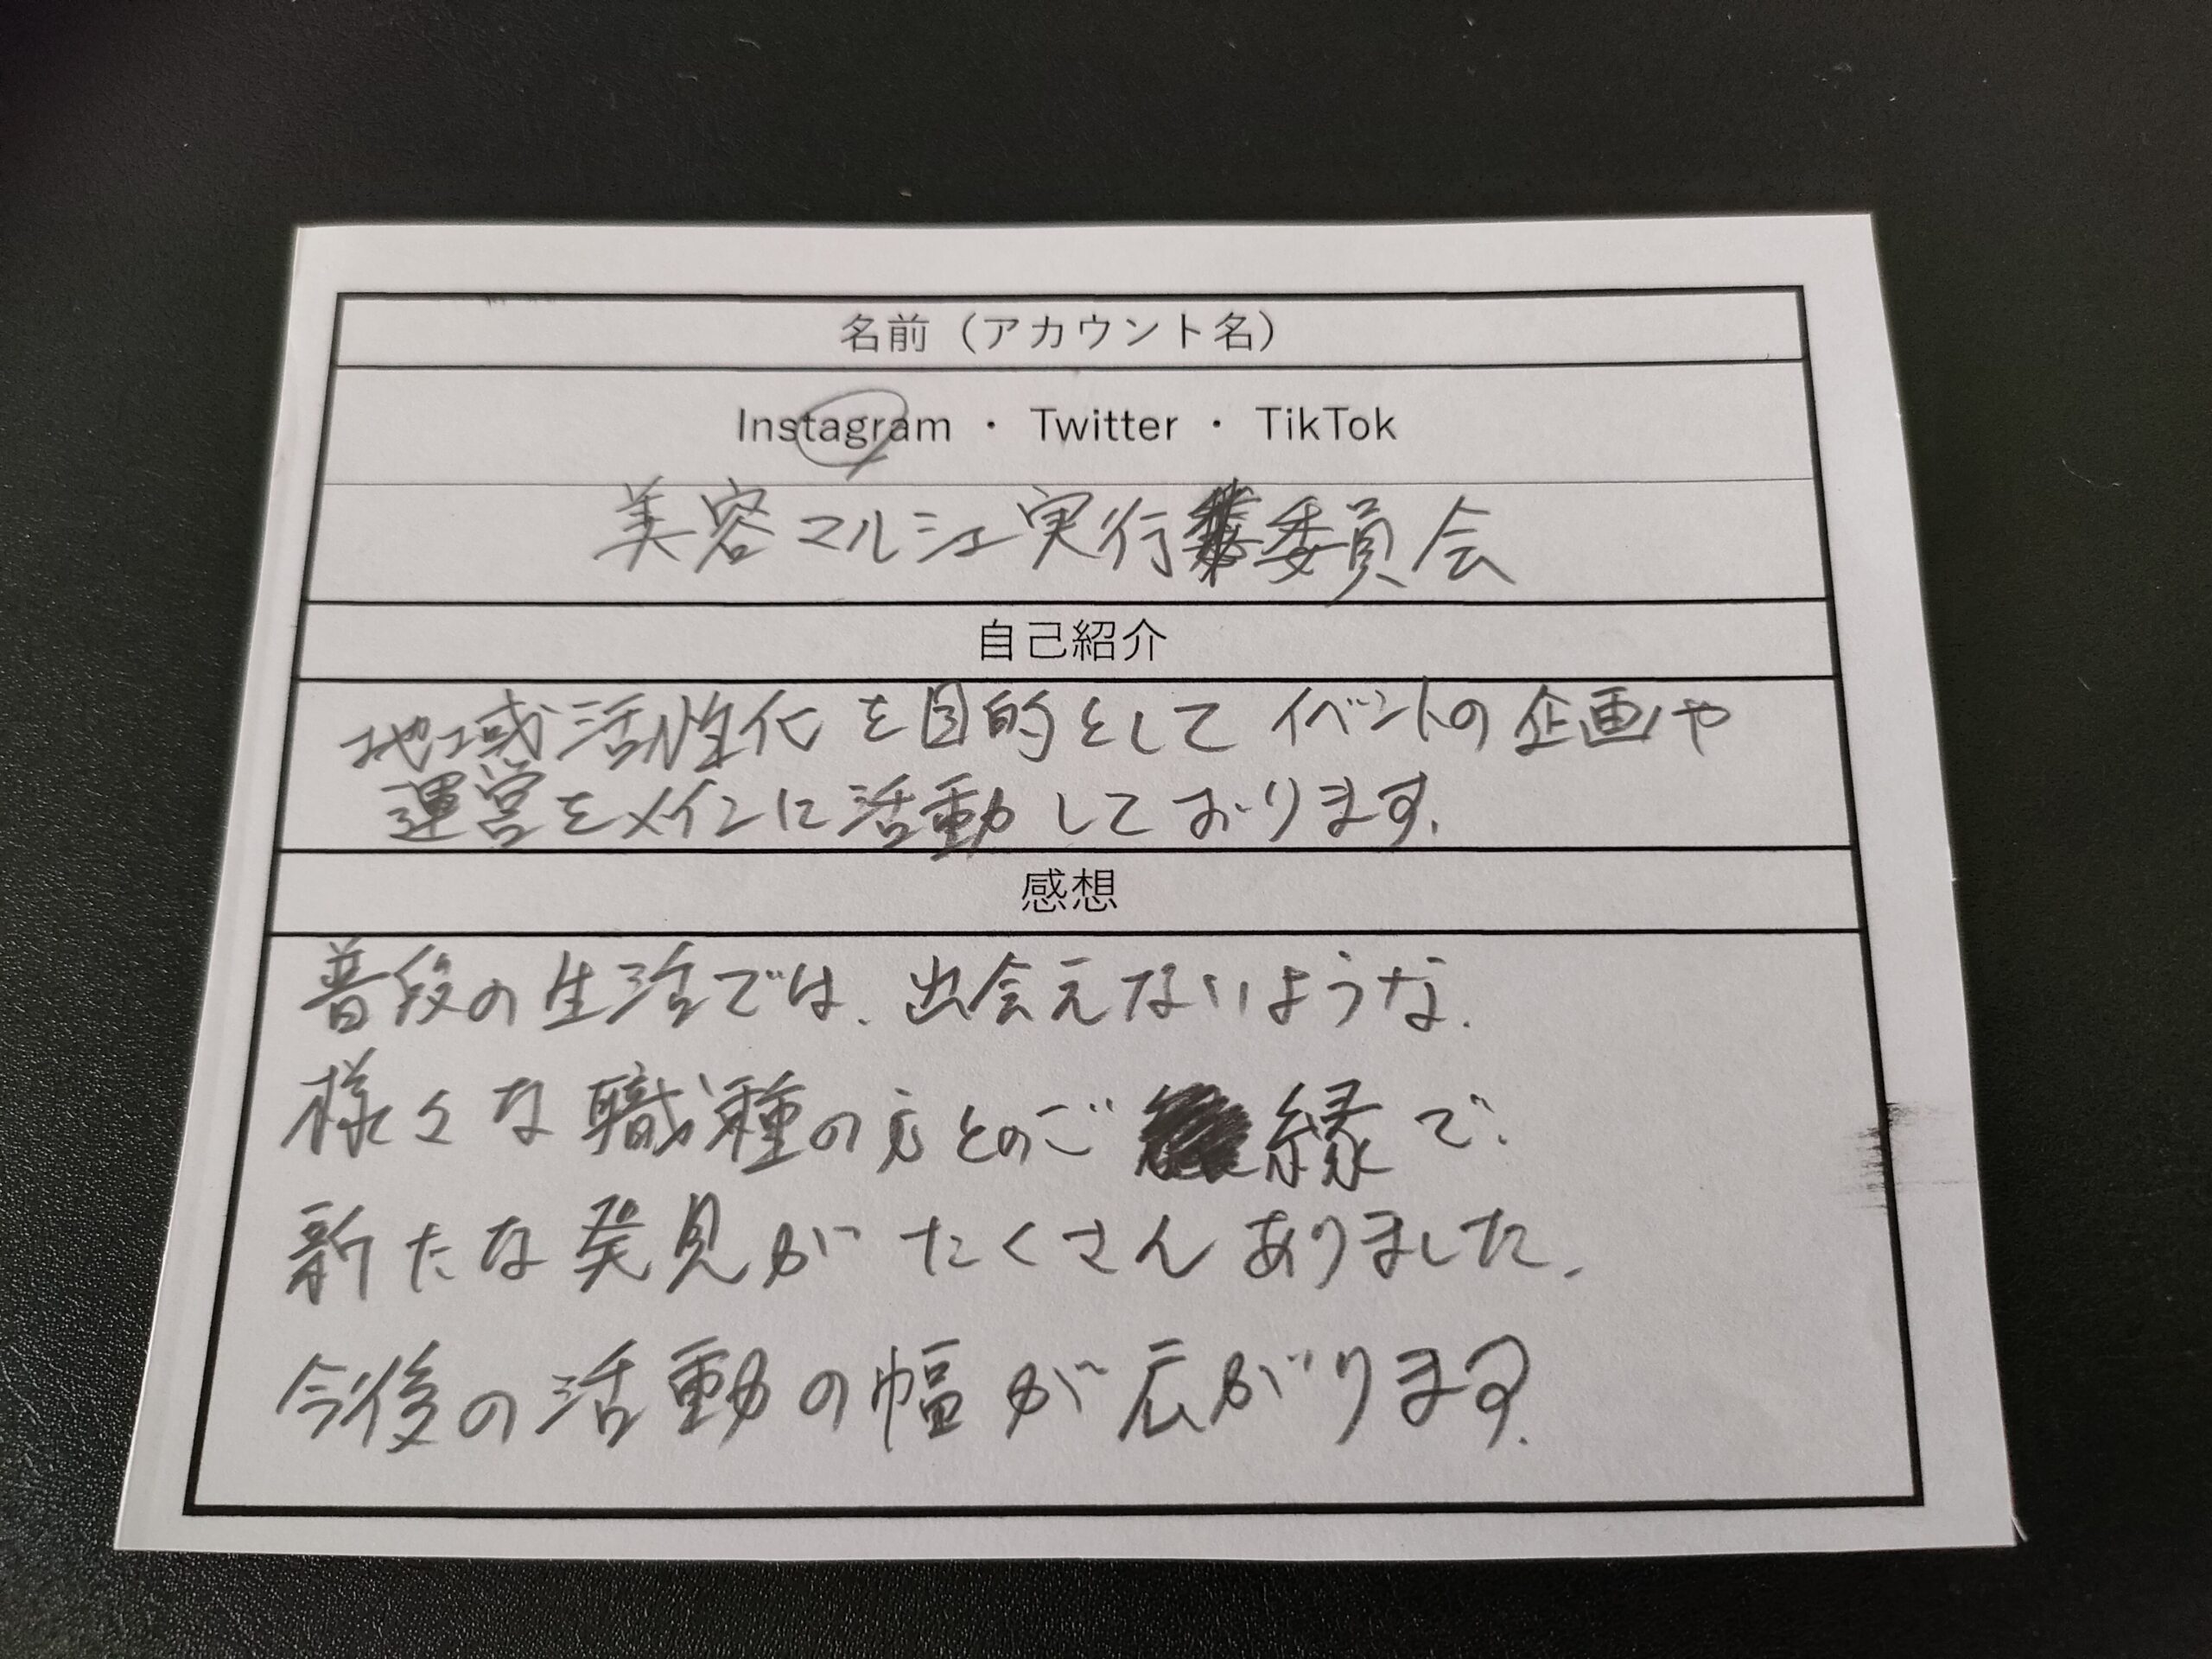 名前（アカウント名）
Instagram ・ Twitter ・ TikTok
美容マルシェ実行委員会
自己紹介
地域活性化を目的としてイベントの企画や
運営をメインに活動しております.
感想
普段の生活では、出会えないような.
様々な職種の方とのご縁で.
新たな発見がたくさんありました.
今後の活動の幅が広がります.